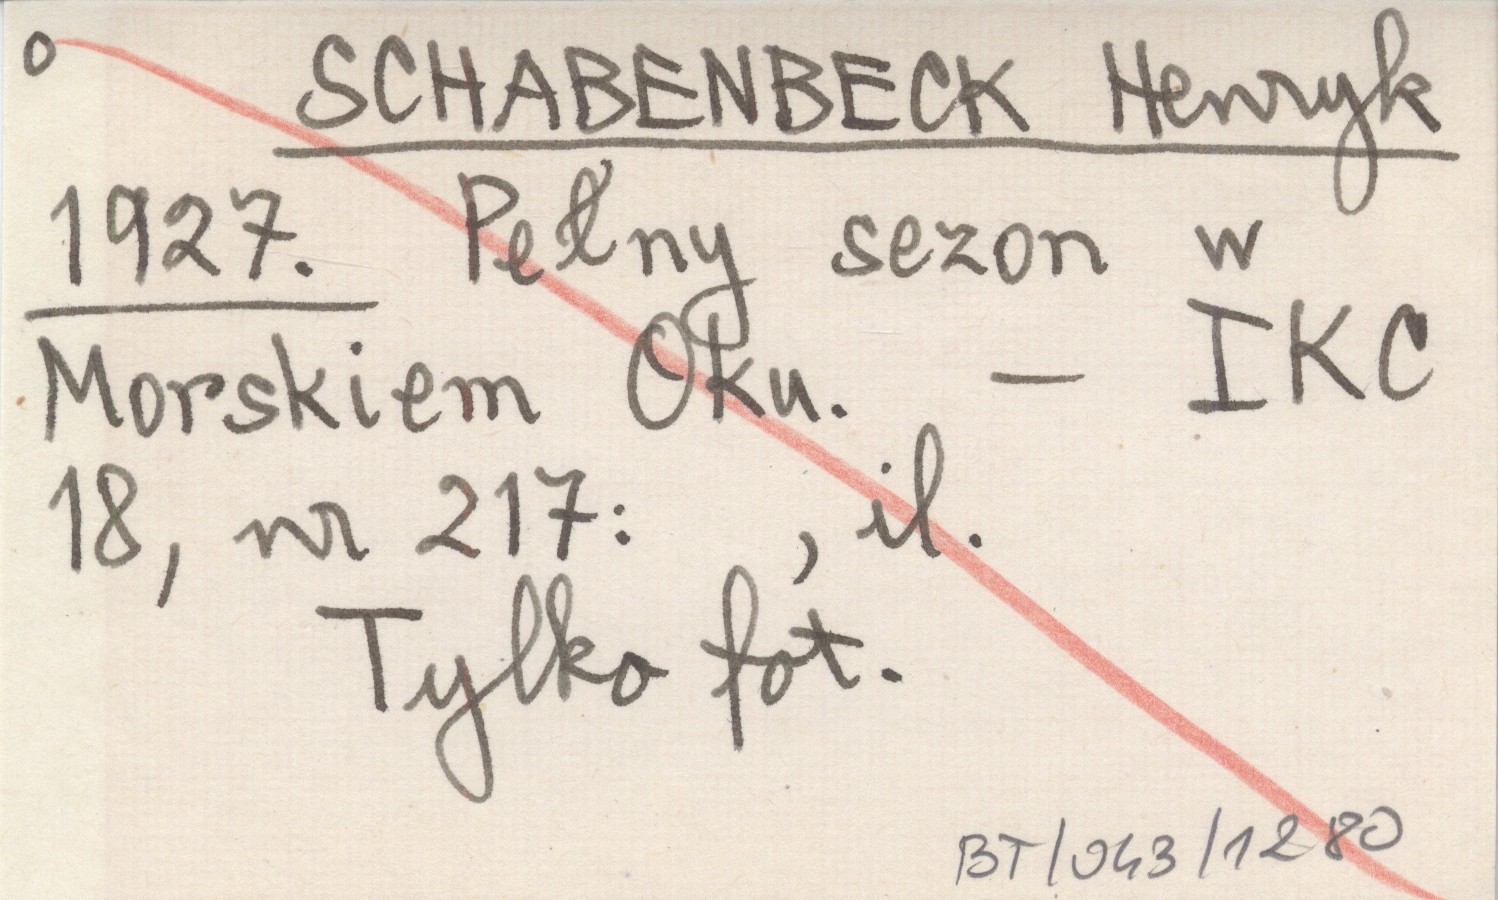 o SCHABENBECK Henryk
1927. Pełny sezon w
Morskiem Oku. — IKC
18, nr 217: , il.
Tylko fot.
BT/043/1280